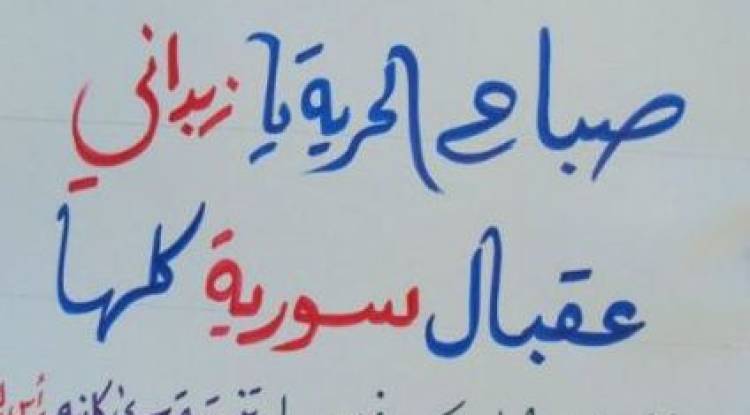 صباح الحرية يا زبداني
عقبال سورية كلها